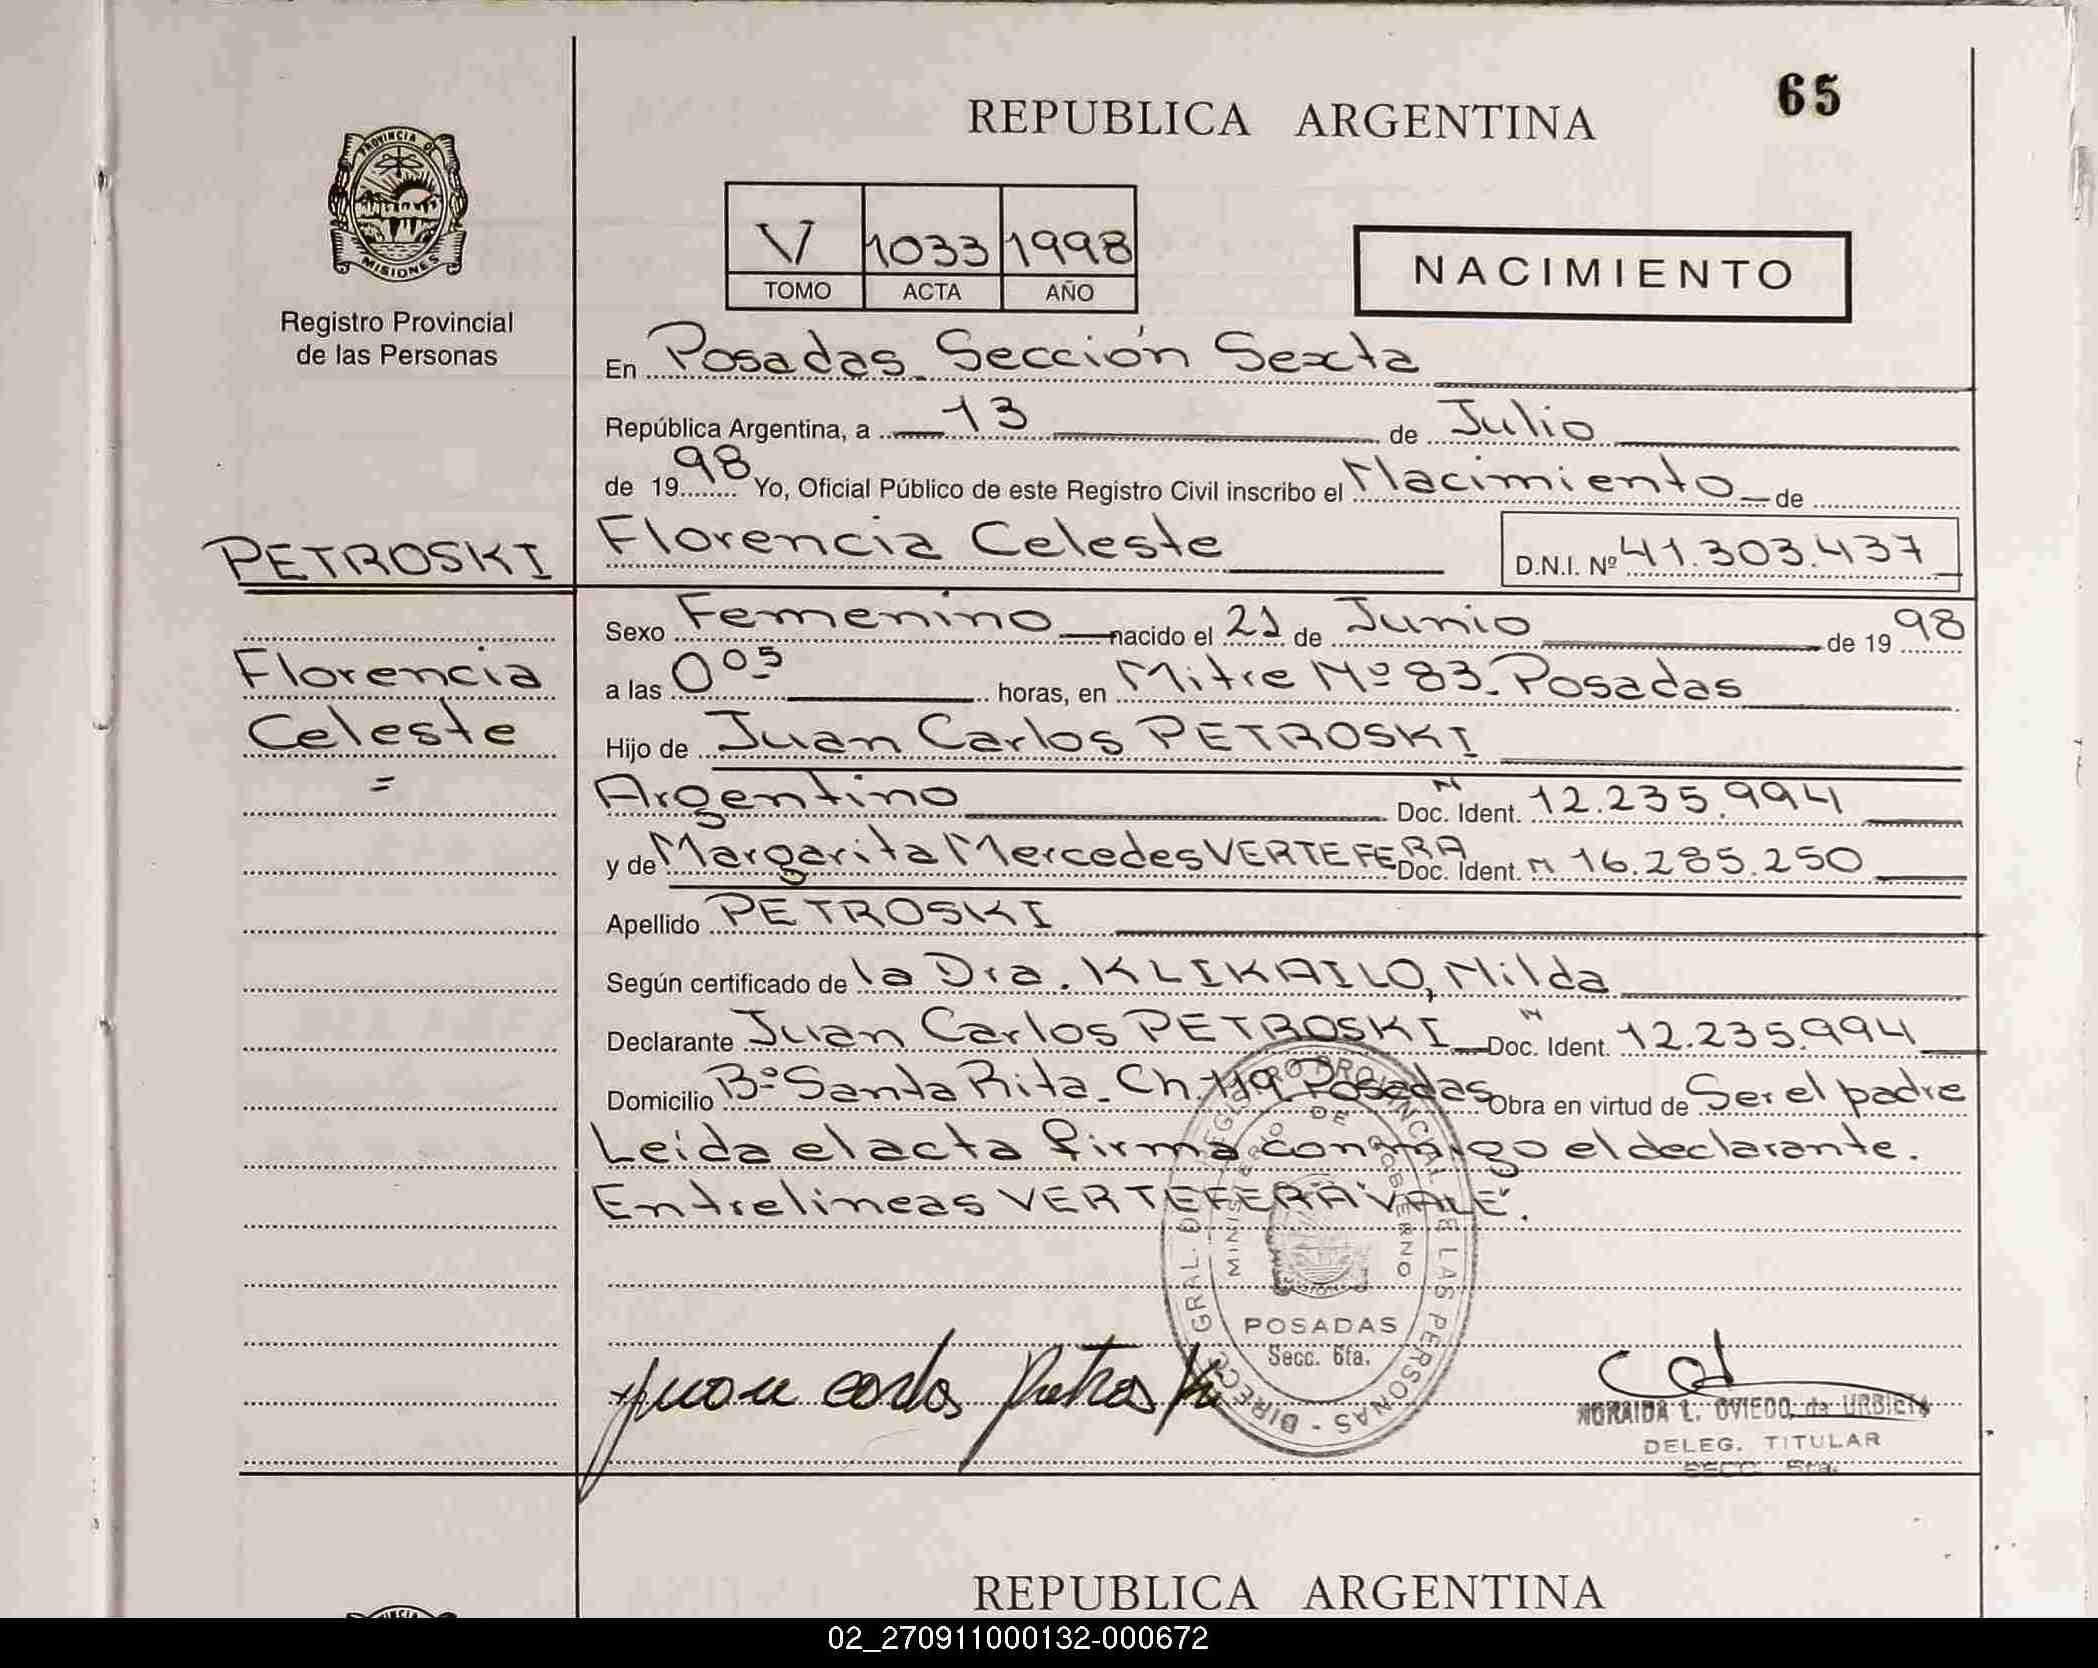 65
REPUBLICA ARGENTINA
PROVINCIA DE
MISIONES
Registro Provincial
de las Personas
V 1033 1998
TOMO ACTA AÑO
NACIMIENTO
En Posadas Sección Sexta
República Argentina, a 13 de Julio
de 1998 Yo, Oficial Público de este Registro Civil inscribo el Nacimiento de
PETROSKI
Florencia Celeste D.N.I. Nº 41.303.437
Sexo Femenino nacido el 21 de Junio de 1998
Florencia
a las 0 05 horas, en Mitre Nº 83 - Posadas
Celeste
=
Hijo de Juan Carlos PETROSKI
Argentino Doc. Ident. M 12.235.994
y de Margarita Mercedes VERTEFERA Doc. Ident. M 16.285.250
Apellido PETROSKI
Según certificado de la Dra. KLIKAILO, Nilda
Declarante Juan Carlos PETROSKI Doc. Ident. M 12.235.994
Domicilio Bº Santa Rita - Ch. 119 Posadas Obra en virtud de Ser el padre
Leida el acta firma conmigo el declarante.
Entrelineas VERTEFERA "VALE".
DIRECC. GRAL. DEL REGISTRO PROVINCIAL DE LAS PERSONAS -
MINISTERIO DE GOBIERNO
POSADAS
Secc. 6ta.
Juan Carlos Petroski
NORAIDA L. OVIEDO de URBIETA
DELEG. TITULAR
SECC. 6ta.
REPUBLICA ARGENTINA
02_270911000132-000672